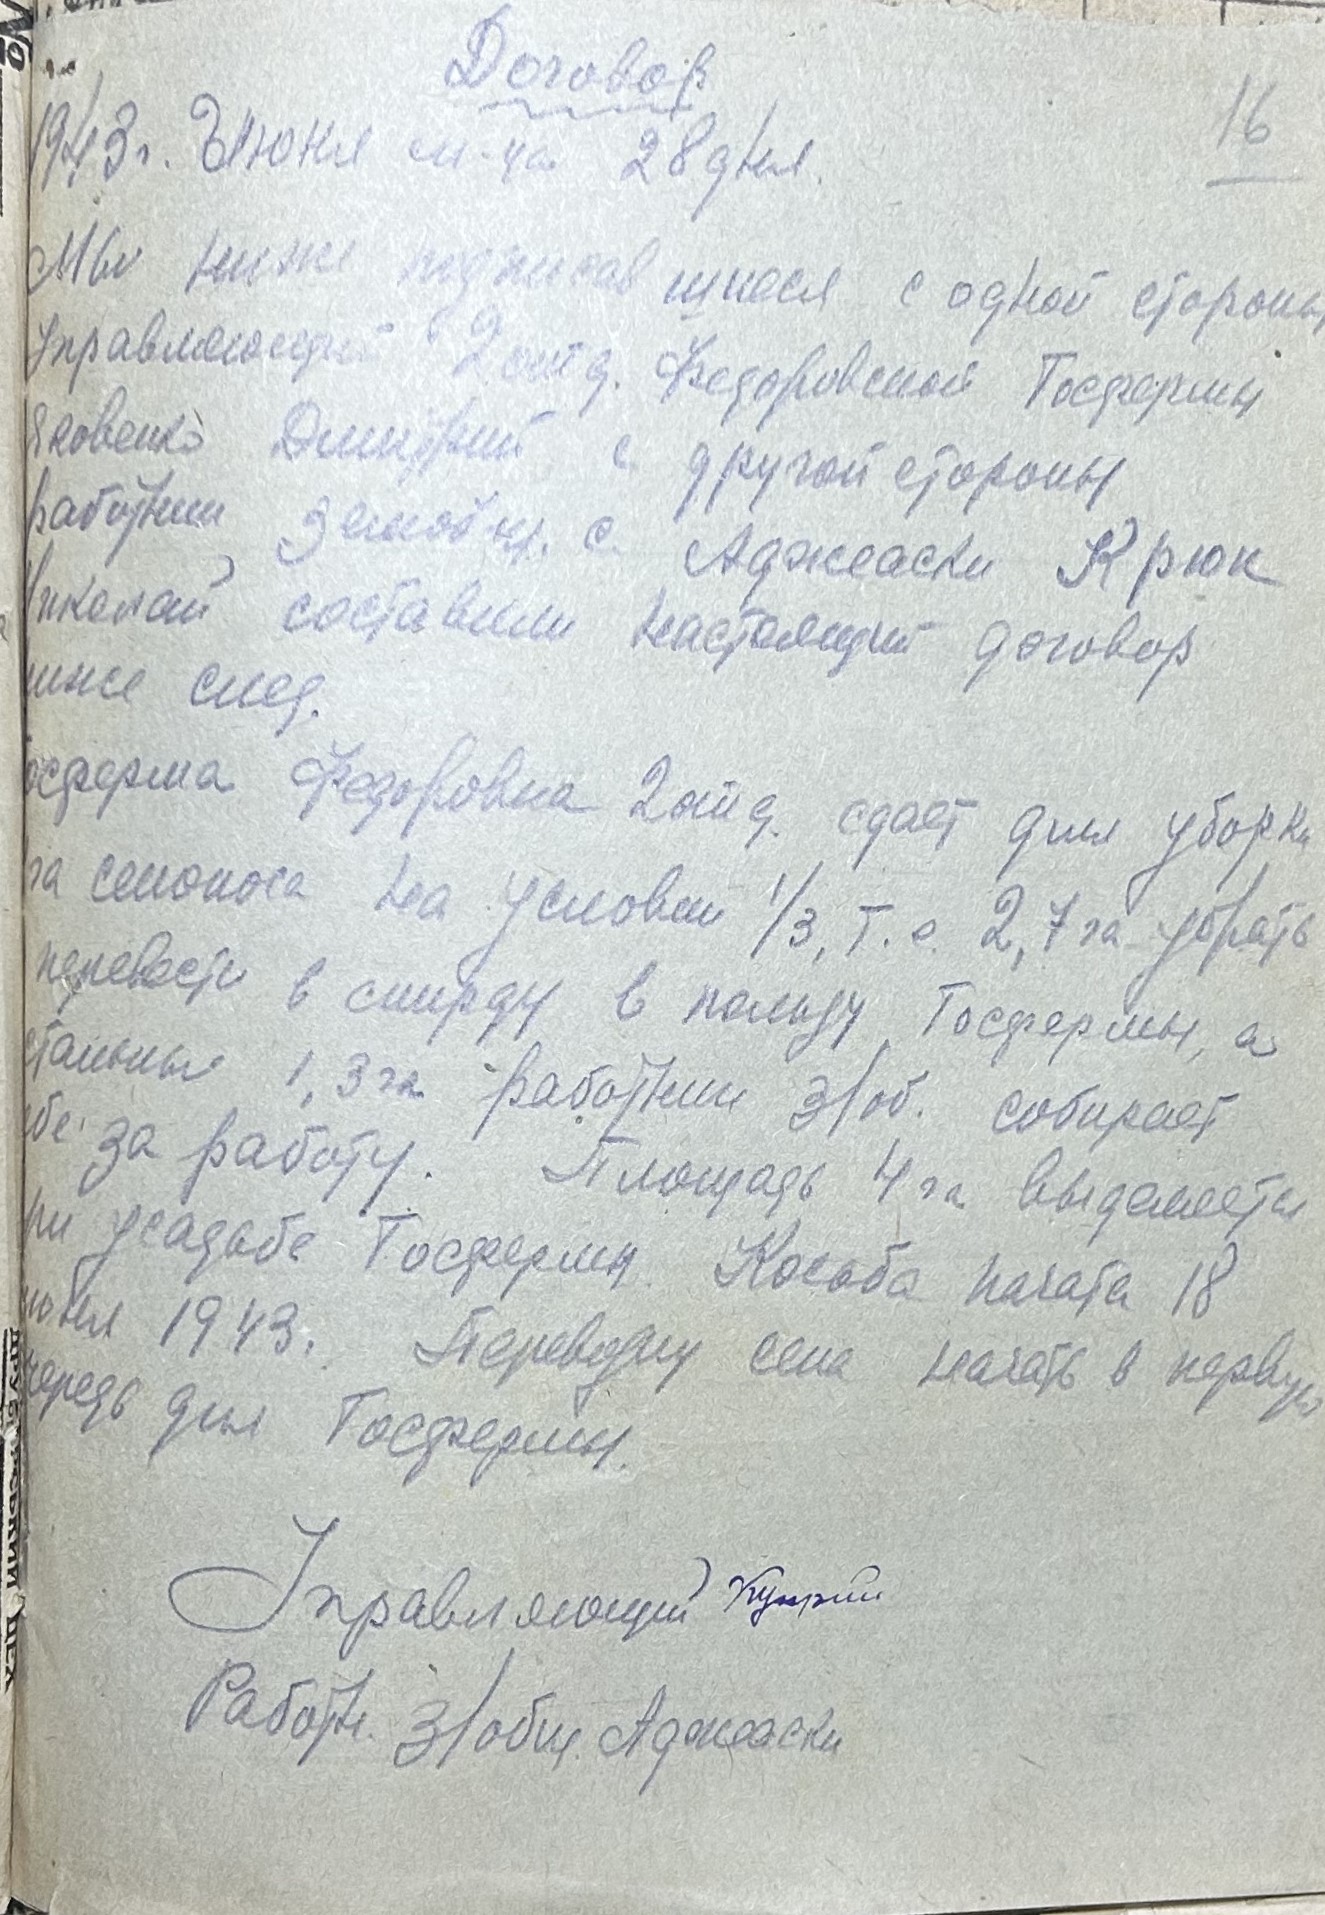 Договор
16
1943 г. Июня м-ца 28 дня.
Мы ниже подписавшиеся с одной стороны
Управляющий 2 отд. Федоровской Госфермы
Яковенко Дмитрий с другой стороны
работник Земобщ. с. Аджиаски Крюк
Николай составили настоящий договор
ниже след.
осферма Федоровка 2 отд. сдает для уборки
га сенокоса на условии 1/3, т.е. 2,7 га убрать
перевести в скирду в пользу Госфермы, а
стальные 1,3 га работник з/об. собирает
ебе за работу. Площадь 4 га выделяется
ри усадьбе Госфермы. Косьба начата 18
июня 1943. Перевозку сена начать в первую
чередь для Госфермы.
Управляющий
Работн. З/общ. Аджиаски